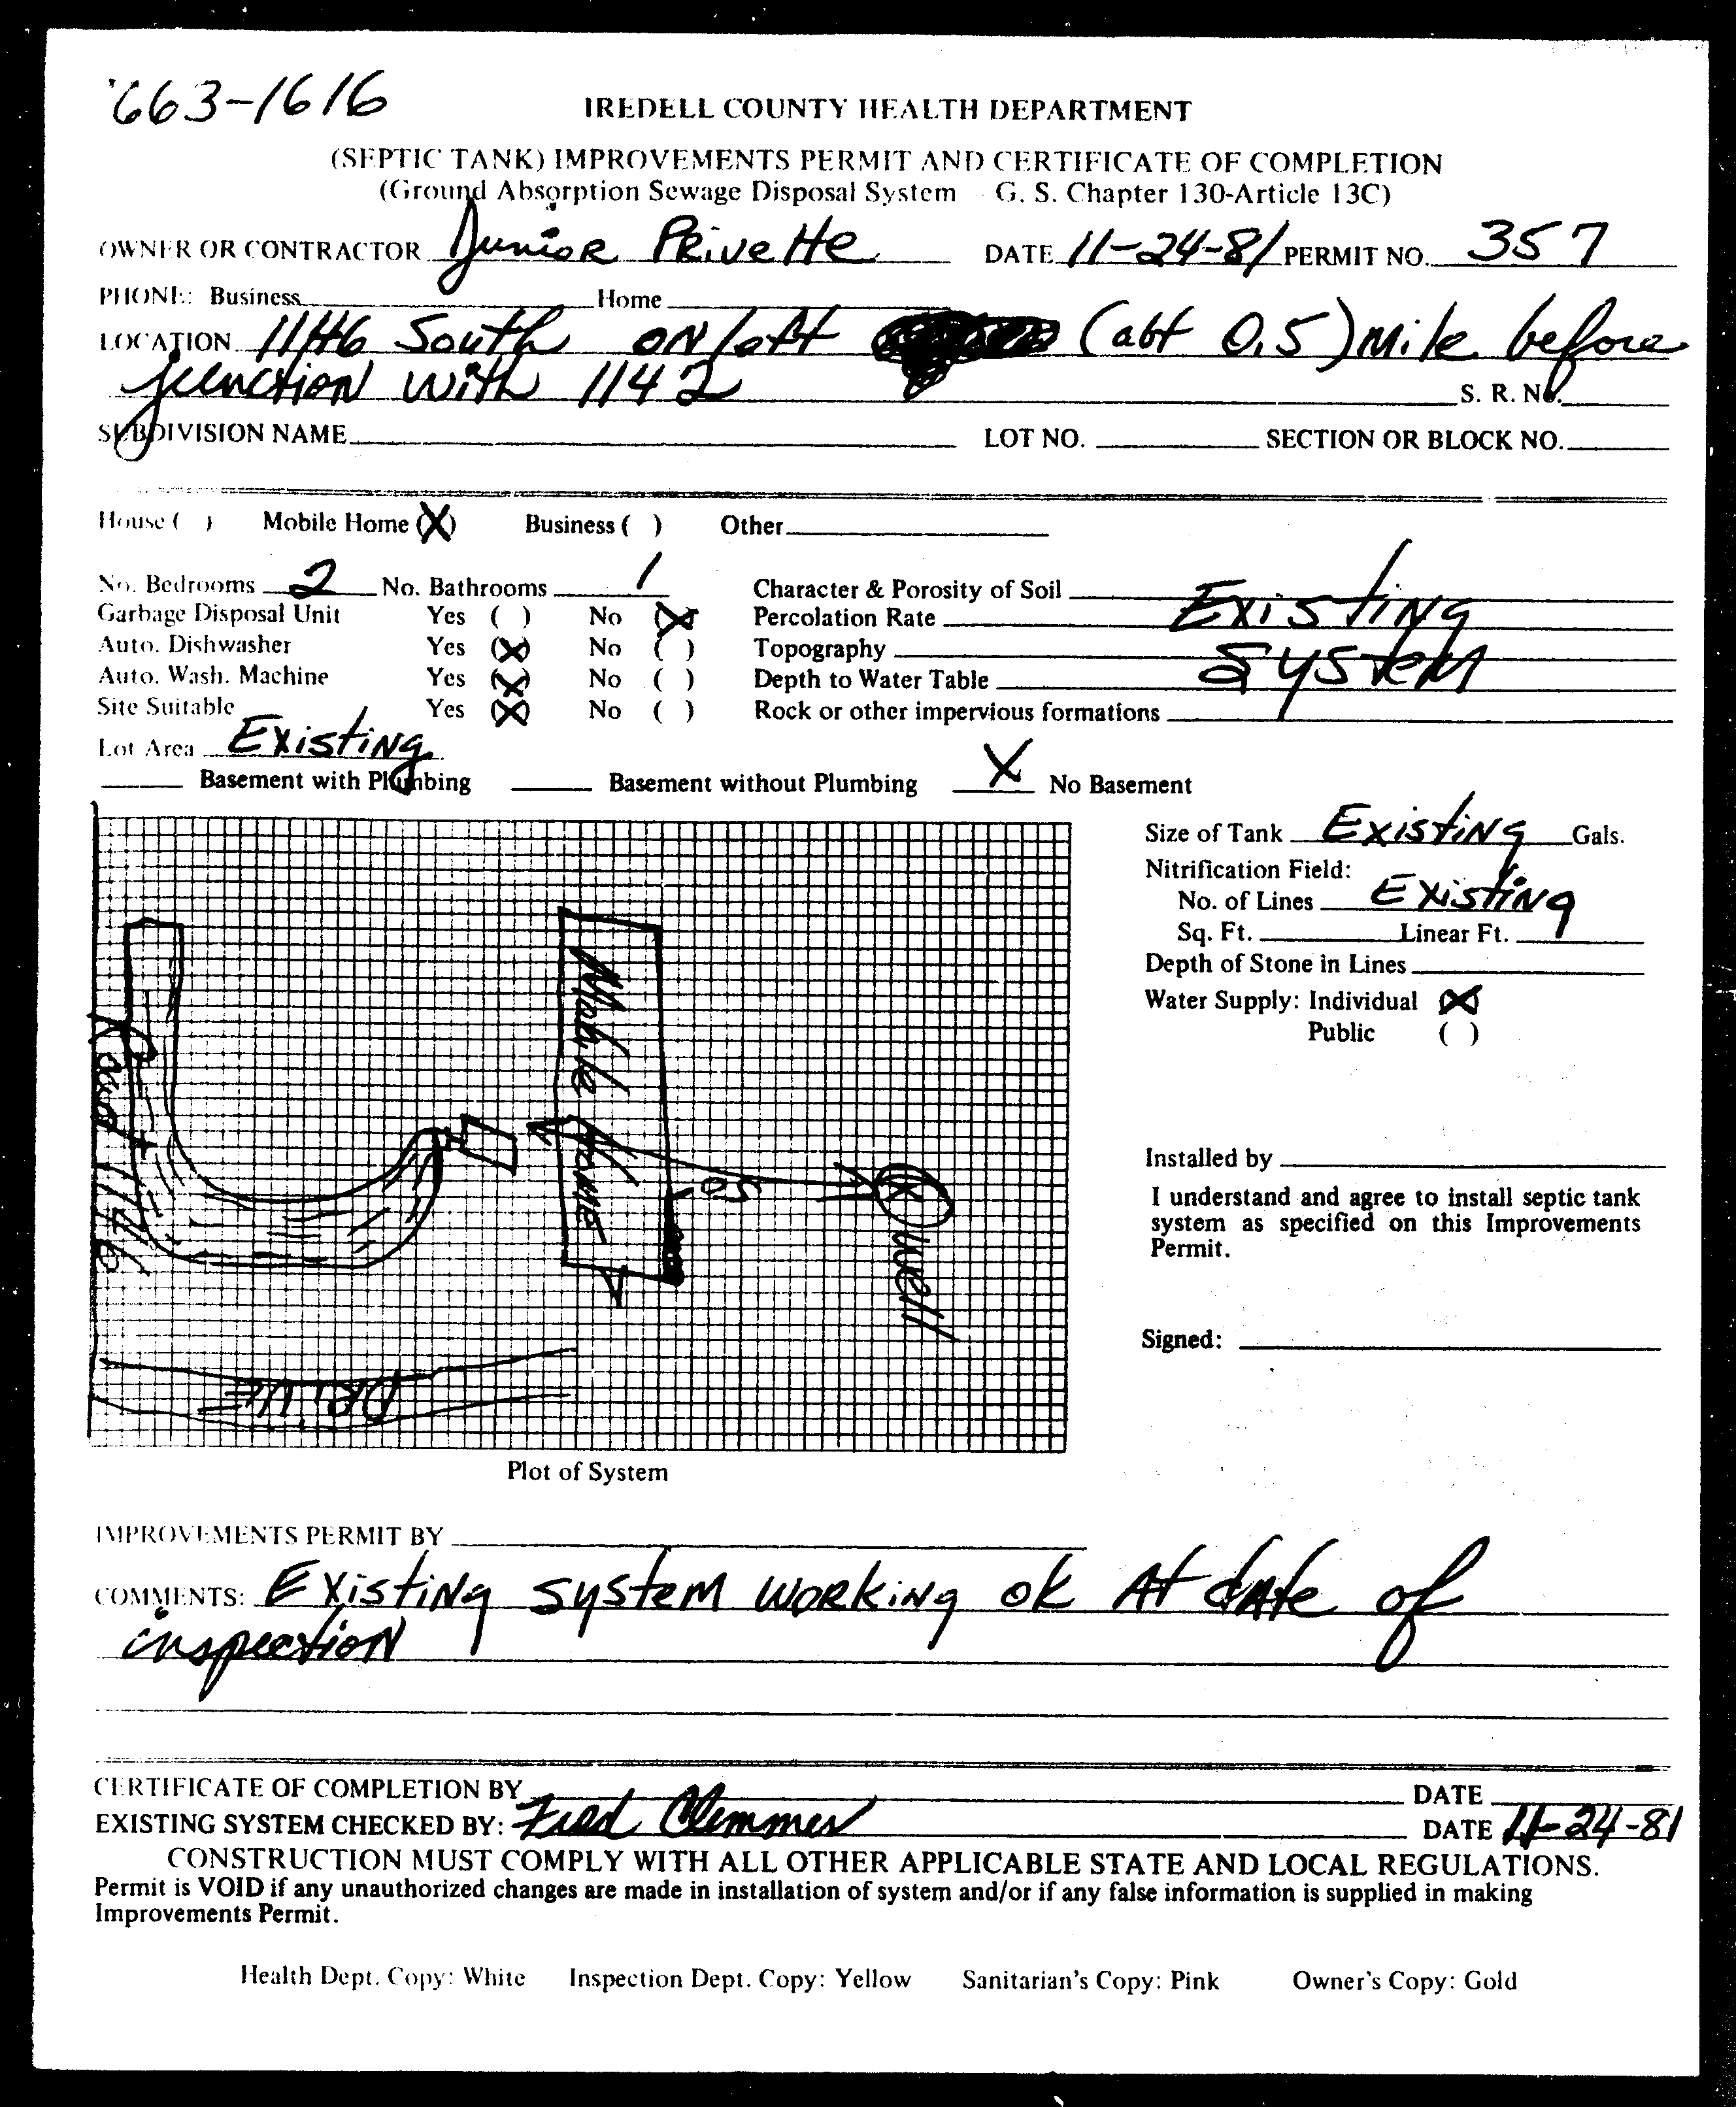 663-1616
IREDELL COUNTY HEALTH DEPARTMENT
(SEPTIC TANK) IMPROVEMENTS PERMIT AND CERTIFICATE OF COMPLETION
(Ground Absorption Sewage Disposal System - G. S. Chapter 130-Article 13C)
OWNER OR CONTRACTOR Junior Privette DATE 11-24-81 PERMIT NO. 357
PHONE: Business Home
LOCATION 1146 South on left (abt 0.5) Mile before
junction with 1142 S. R. No.
SUBDIVISION NAME LOT NO. SECTION OR BLOCK NO.
House ( ) Mobile Home (X) Business ( ) Other
No. Bedrooms 2 No. Bathrooms 1 Character & Porosity of Soil
Garbage Disposal Unit Yes ( ) No (X) Percolation Rate Existing
Auto. Dishwasher Yes (X) No ( ) Topography System
Auto. Wash. Machine Yes (X) No ( ) Depth to Water Table
Site Suitable Yes (X) No ( ) Rock or other impervious formations
Lot Area Existing
Basement with Plumbing Basement without Plumbing X No Basement
Size of Tank Existing Gals.
Nitrification Field:
No. of Lines Existing
Sq. Ft. Linear Ft.
Depth of Stone in Lines
Water Supply: Individual (X)
Public ( )
Road 1146
Mobile Home
50
Well
Drive
Installed by
I understand and agree to install septic tank
system as specified on this Improvements
Permit.
Signed:
Plot of System
IMPROVEMENTS PERMIT BY
COMMENTS: Existing system working ok At date of
inspection
CERTIFICATE OF COMPLETION BY DATE
EXISTING SYSTEM CHECKED BY: Fred Clemmer DATE 11-24-81
CONSTRUCTION MUST COMPLY WITH ALL OTHER APPLICABLE STATE AND LOCAL REGULATIONS.
Permit is VOID if any unauthorized changes are made in installation of system and/or if any false information is supplied in making
Improvements Permit.
Health Dept. Copy: White Inspection Dept. Copy: Yellow Sanitarian's Copy: Pink Owner's Copy: Gold